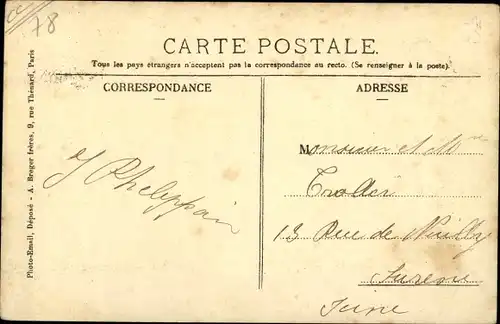 78
CARTE POSTALE.
Tous les pays étrangers n'acceptent pas la correspondance au recto. (Se renseigner à la poste)
CORRESPONDANCE
ADRESSE
Photo-Email, Déposé - A. Breger frères, 9, rue Thénard, Paris
Monsieur et Mme
13 Rue de Neuilly
Surene
Seine